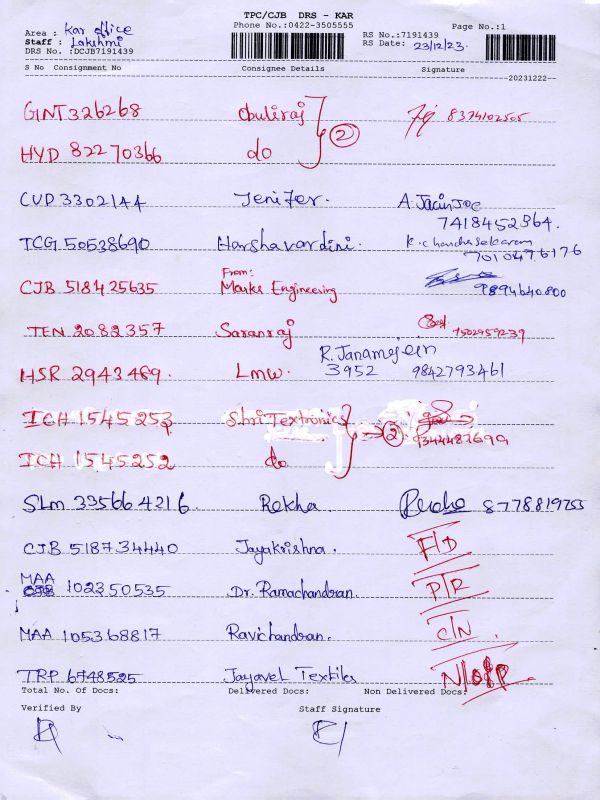 TPC/CJB DRS - KAR
Phone No.:0422-3505555
Page No.:1
Area : Kar office
RS No.:7191439
Staff : Lakshmi
RS Date: 23/12/23.
DRS No. :DCJB7191439
S No Consignment No Consignee Details Signature
20231222
GINT 326268 Obuliraj 2 8374102505
HYD 82270366 do
CUD 3302144 Jenifer. A Jacin Joe
7418452364.
TCG 50538690 Harshavardini. K. Chandrasekaram
7010476176
From:
CJB 518425635 Marks Engineering 9894640800
TEN 2082357 Saranraj 7502959239
R. Janamejein
HSR 2943469. Lmw. 3952 9842793461
ICH 1545253 Shri Textronics 2 9344487699
ICH 1545252 do
SLM 335664216 Rekha. 8778819755
CJB 518734440 Jayakrishna. F/D
MAA 102350535 Dr. Ramachandran. P/R
MAA 105368817 Ravichandran. C/N.
TRP 6748525 Jayavel Textiles
Total No. Of Docs: Delivered Docs: Non Delivered Docs:
Verified By Staff Signature